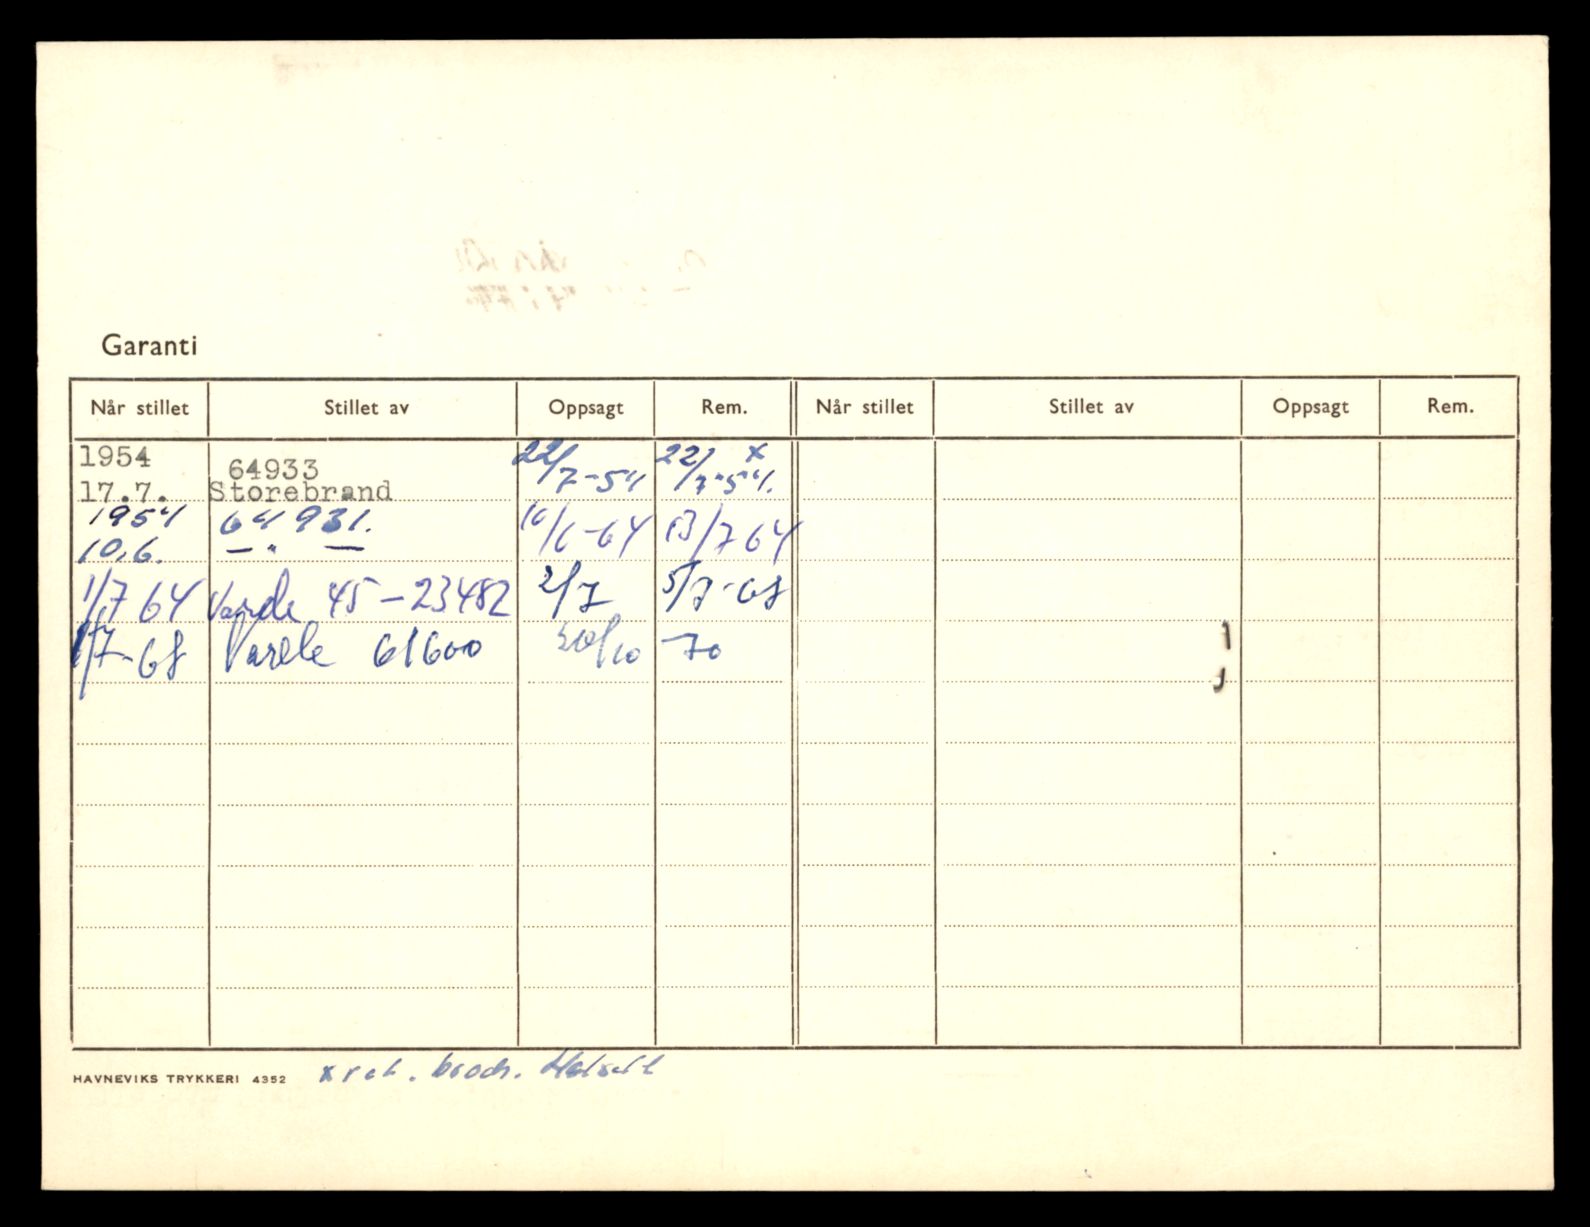 Garanti
Når stillet Stillet av Oppsagt Rem. Når stillet Stillet av Oppsagt Rem.
1954 64933 22/7-54 22/7-54. x
17.7. Storebrand
1954 64931. 10/6-64 13/7 64
10.6. — " —
1/7 64 Varde 45-23482 2/7 5/7-68
1/7-68 Varde 61600 20/10 -70
HAVNEVIKS TRYKKERI 4352 x ret.